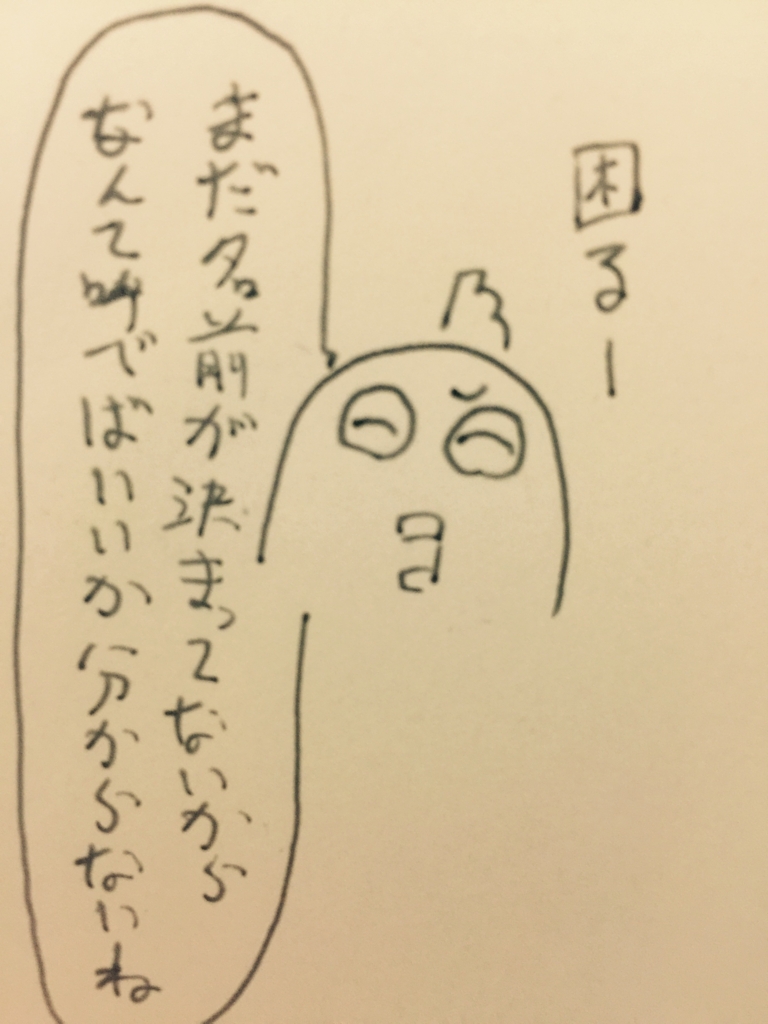 困るー
まだ名前が決まってないから
なんて呼でばいいか分からないね